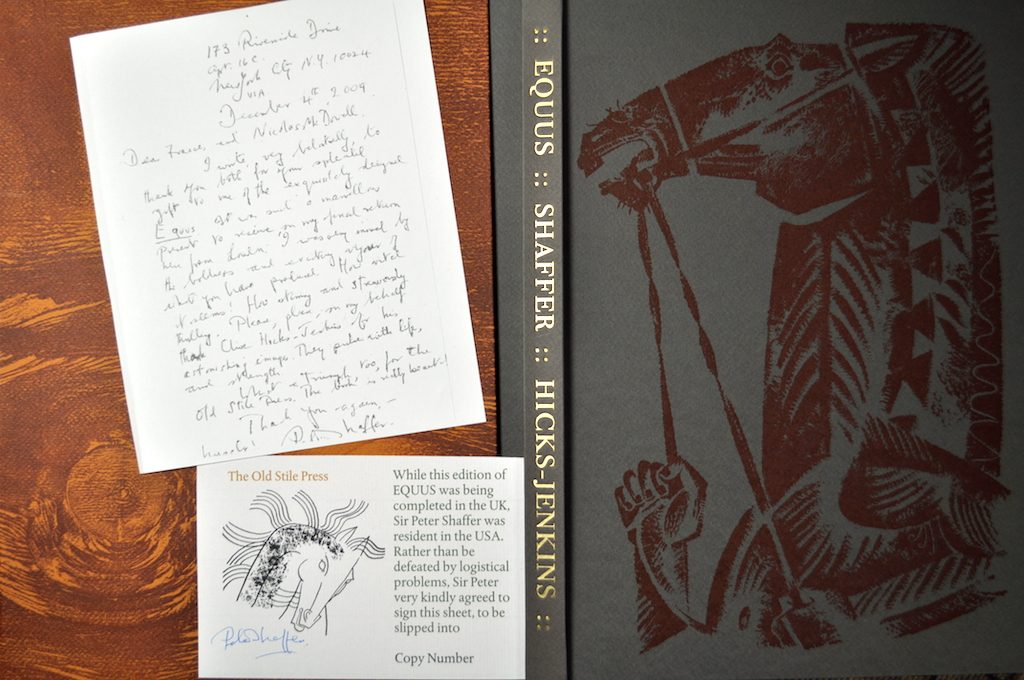 173 Riverside Drive
Apt. 16C.
New York City N.Y. 10024
USA
December 4th 2009.
Dear Frances, and Nicolas McDowall.
I write, very belatedly to
thank you both for your splendid
gift to me of the exquisitely designed
Equus. It was such a marvellous
present to receive on my final return
here from London. I was very moved by
the boldness and exciting vigour of
what you have produced. How
it seems! How strong and strenuously
thrilling. Please, please, on my behalf
thank Clive Hicks-Jenkins for his
astonishing images. They pulse with life,
and strength.
What a triumph, too, for the
Old Stile Press. The book is really beaut-!
Thank you again,
Peter Shaffer.
The Old Stile Press
Peter Shaffer
While this edition of
EQUUS was being
completed in the UK,
Sir Peter Shaffer was
resident in the USA.
Rather than be
defeated by logistical
problems, Sir Peter
very kindly agreed to
sign this sheet, to be
slipped into
Copy Number
:: EQUUS :: SHAFFER :: HICKS-JENKINS ::